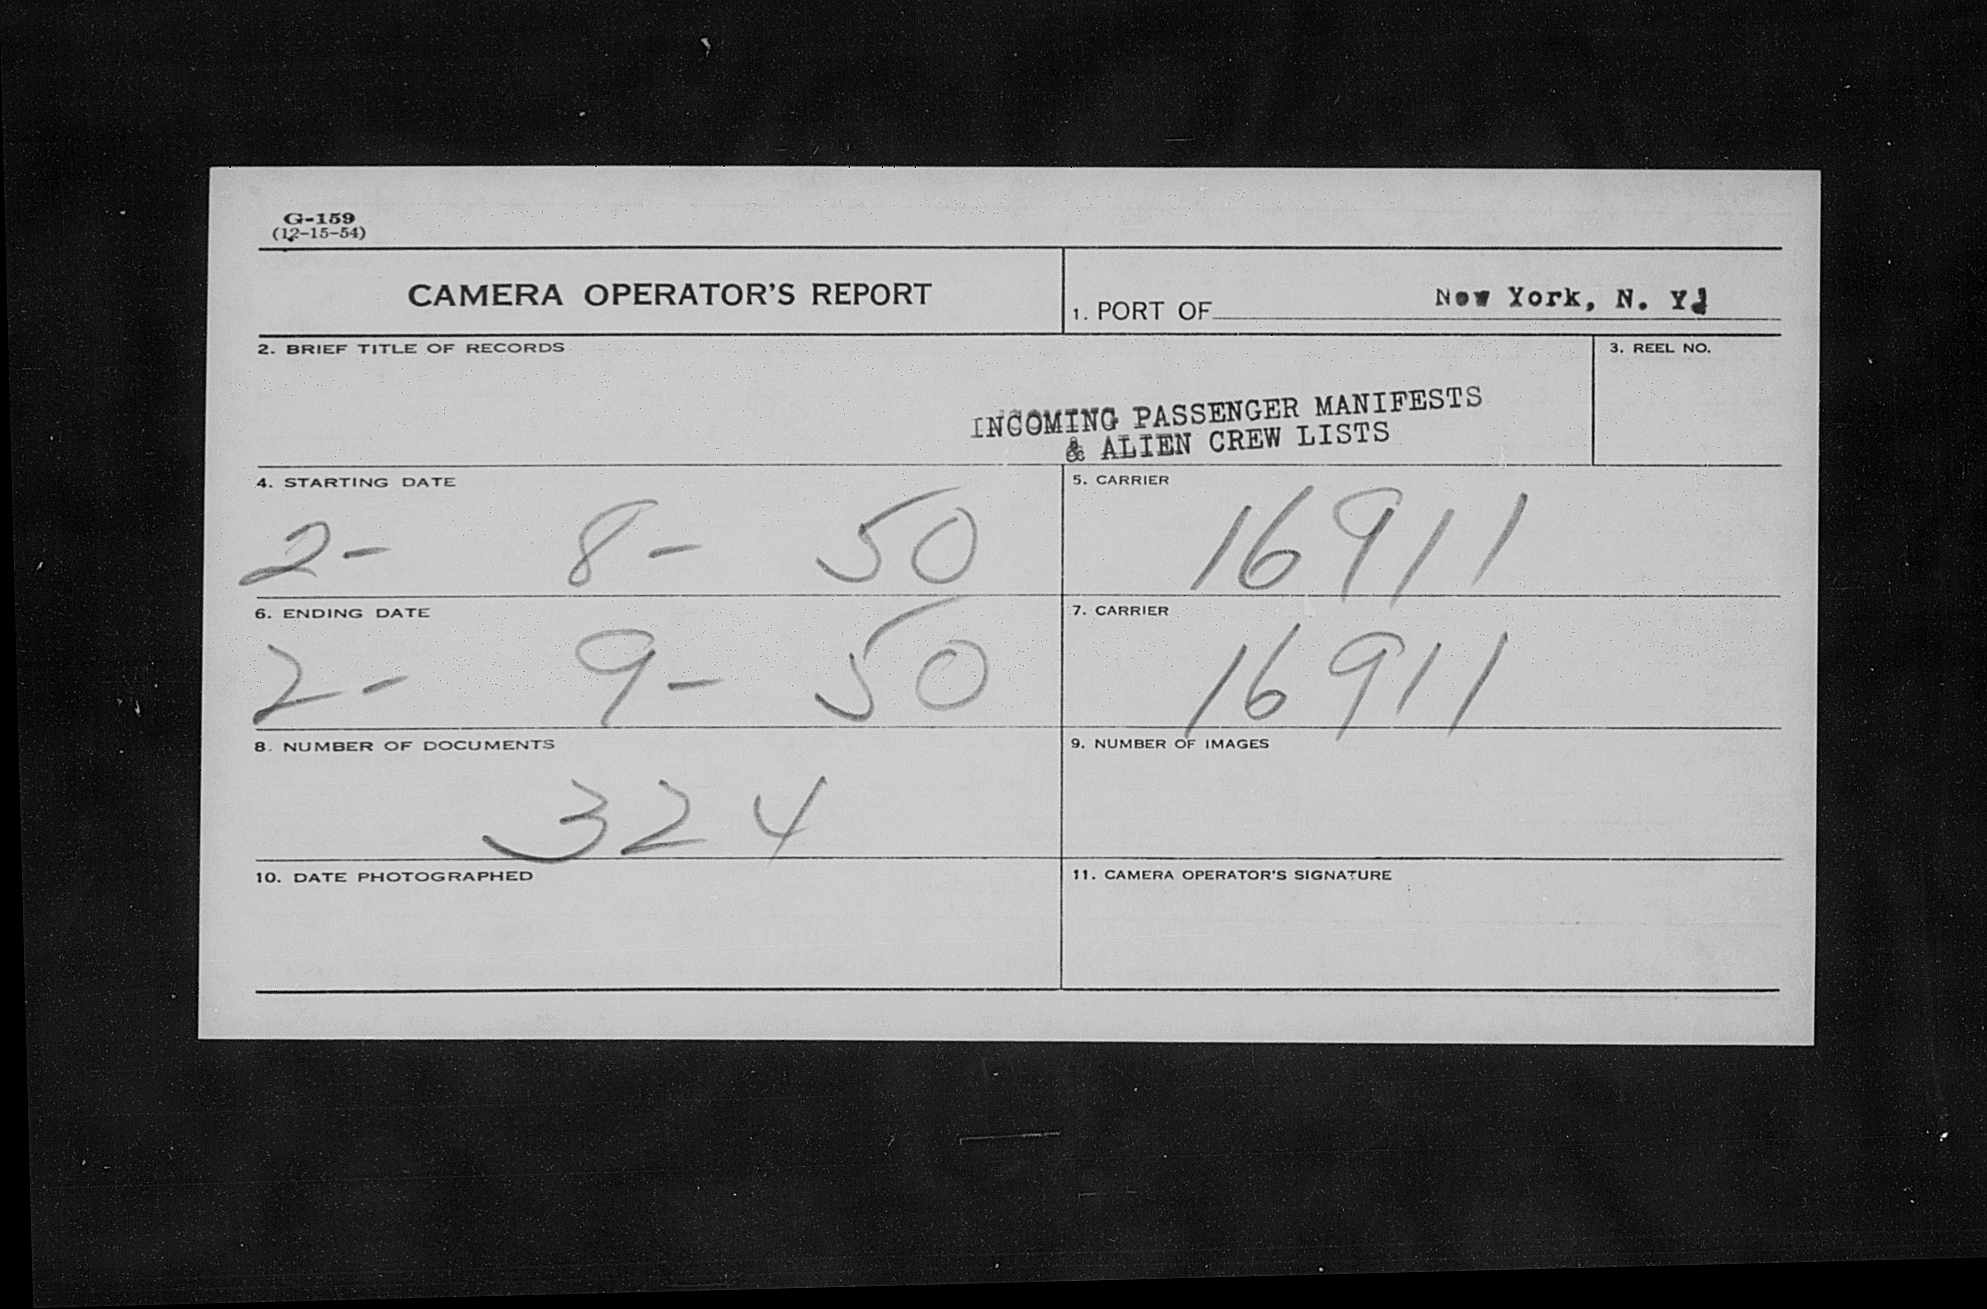 G-159
(12-15-54)
CAMERA OPERATOR'S REPORT
1. PORT OF New York, N. Y.
2. BRIEF TITLE OF RECORDS
3. REEL NO.
INCOMING PASSENGER MANIFESTS
& ALIEN CREW LISTS
4. STARTING DATE
2- 8- 50
5. CARRIER
16911
6. ENDING DATE
2- 9- 50
7. CARRIER
16911
8. NUMBER OF DOCUMENTS
324
9. NUMBER OF IMAGES
10. DATE PHOTOGRAPHED
11. CAMERA OPERATOR'S SIGNATURE